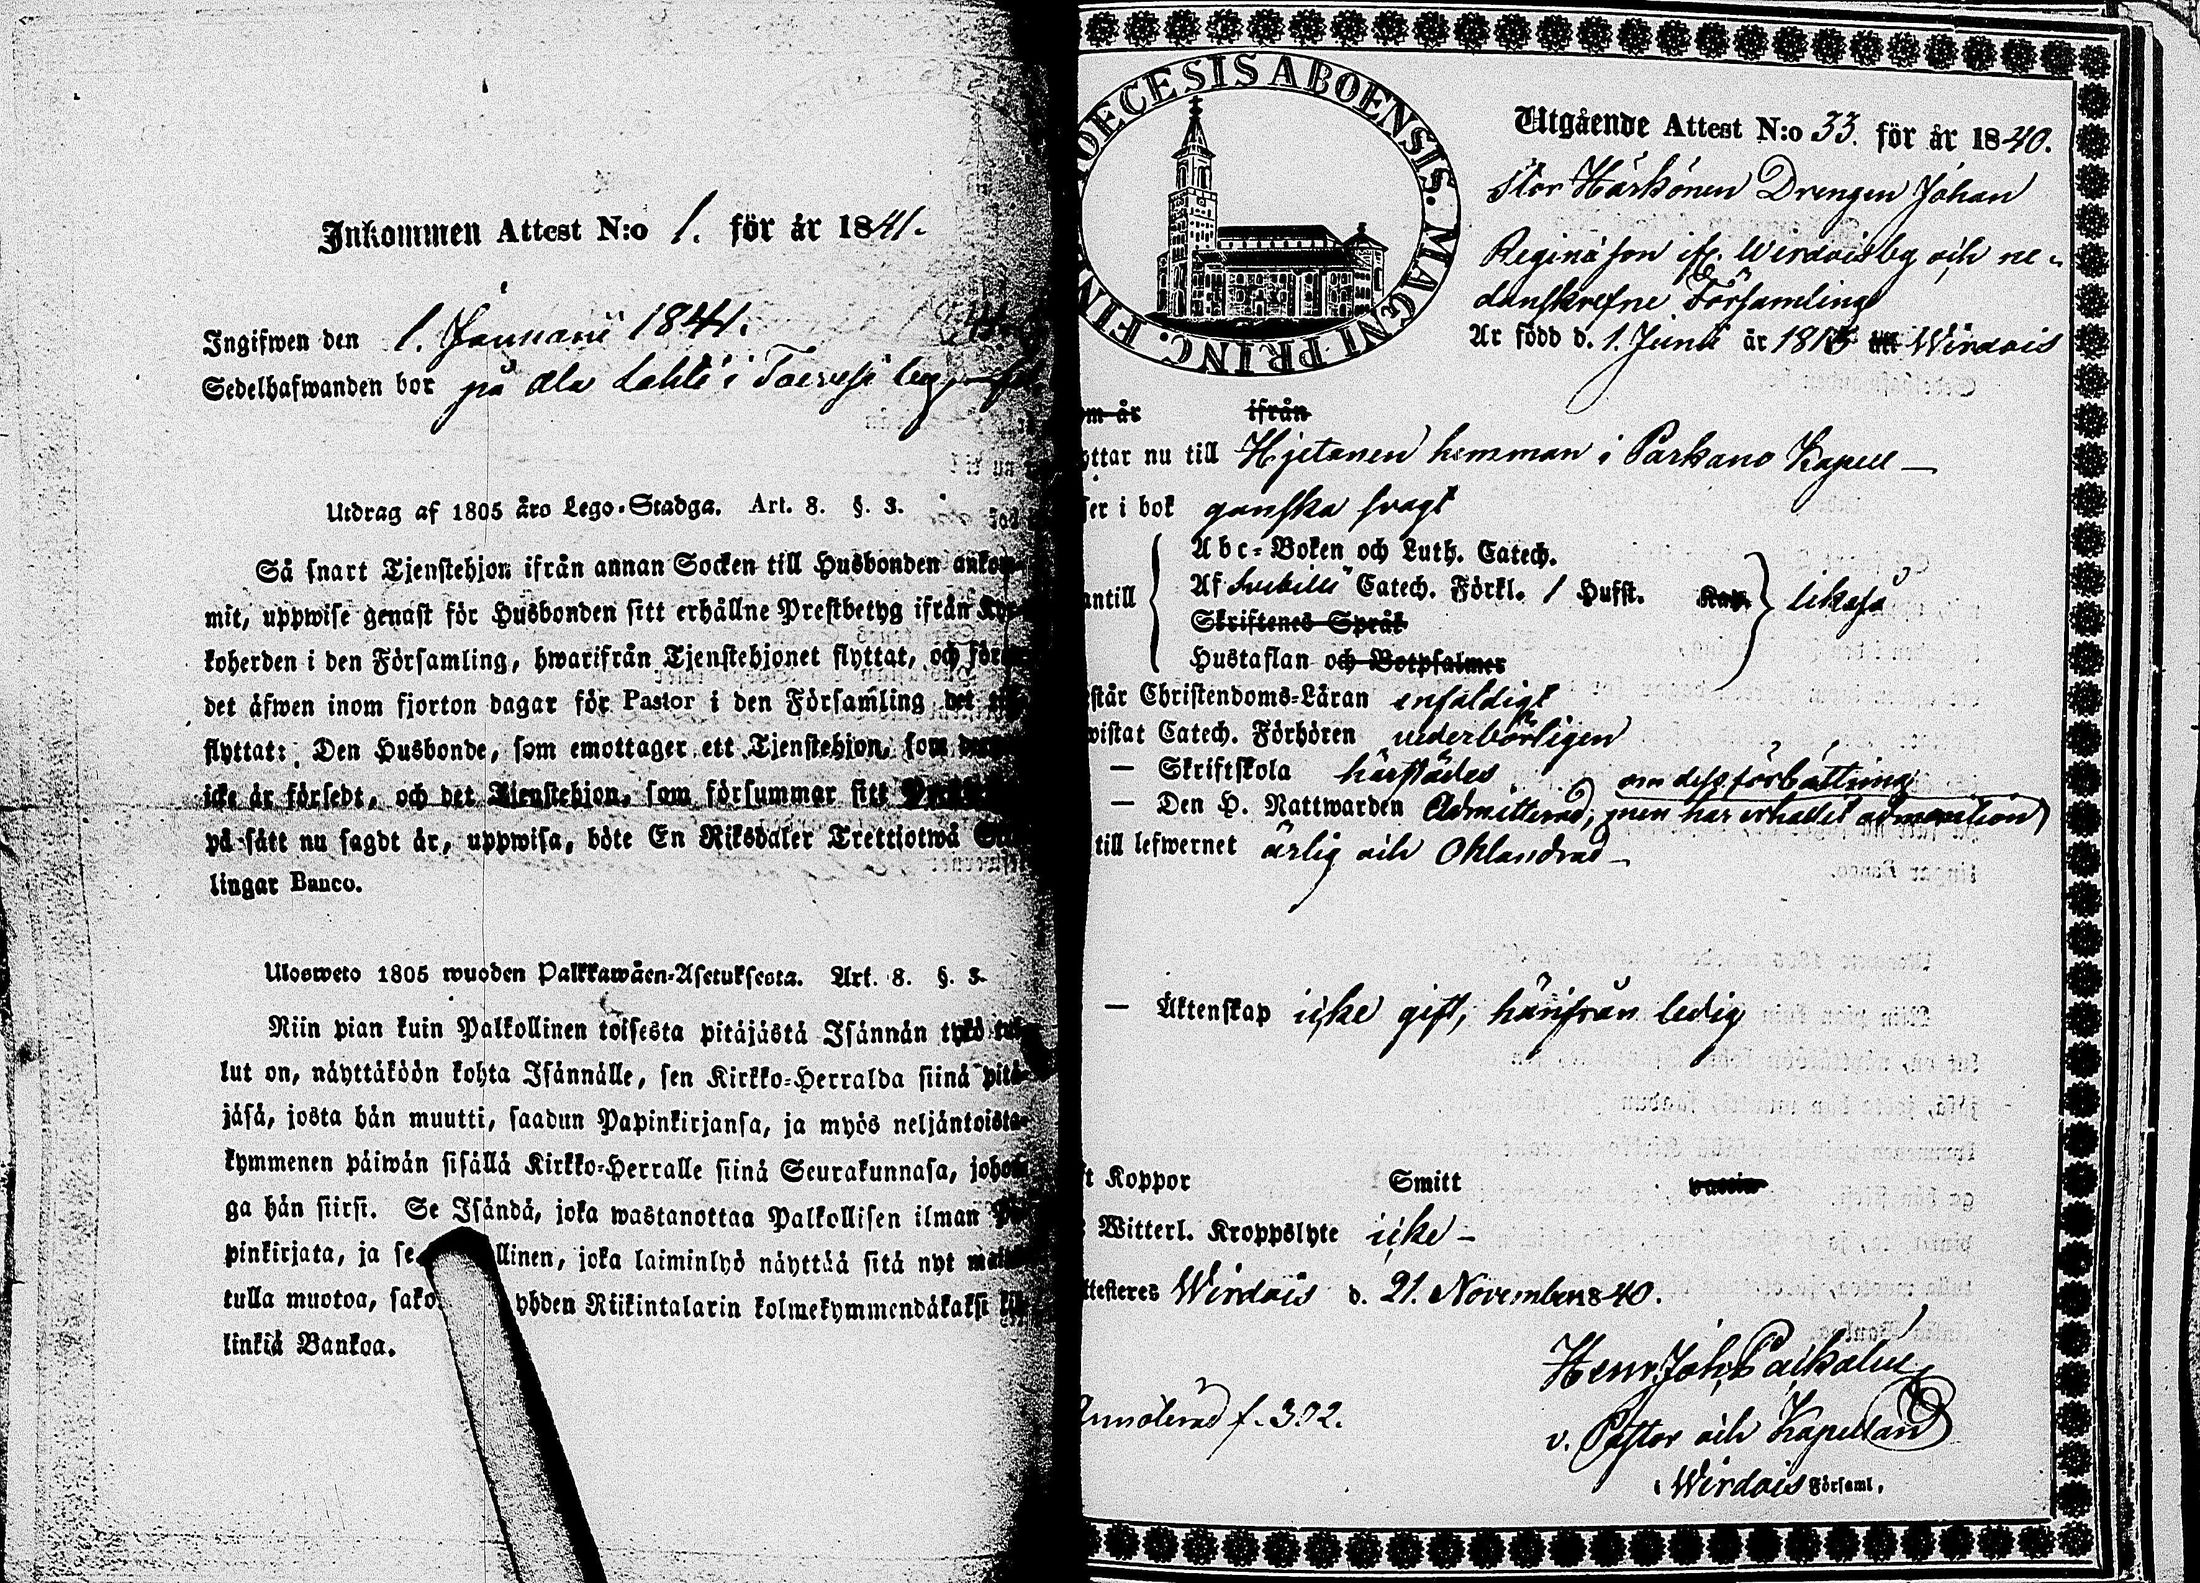 Inkommen Attest N:o 1. för år 1841.
Ingifwen den 1. Januarii 1841.
Sedelhafwanden bor på Ala Lahti i
Utdrag af 1805 års Lego-Stadga. Art. 8. §. 3.
Så snart Tjenstehjon ifrån annan Socken till Husbonden ankom-
mit, uppwise genast för Husbonden sitt erhållne Prestbetyg ifrån
koherden i den Församling, hwarifrån Tjenstehjonet flyttat, och
det äfwen inom fjorton dagar för Pastor i den Församling det
flyttat: Den Husbonde, som emottager ett Tjenstehjon, som
icke är försedt, och det Tjenstehjon, som försummar sitt
på sätt nu sagdt är, uppwisa, böte En Riksdaler Trettiotwå
lingar Banco.
Ulosweto 1805 wuoden Palkkawäen-Asetuksesta. Art. 8. §. 3.
Niin pian kuin Palkollinen toisesta pitäjästä Isännän tykö
lut on, näyttäköön kohta Isännälle, sen Kirkko-Herralda siinä pitä-
jäsä, josta hän muutti, saadun Papinkirjansa, ja myös neljäntoista-
kymmenen päiwän sisällä Kirkko-Herralle siinä Seurakunnasa, johon-
ga hän siirsi. Se Isändä, joka wastanottaa Palkollisen ilman
pinkirjata, ja se llinen, joka laiminlyö näyttää sitä nyt
tulla muotoa, sako yhden Riikintalarin kolmekymmendäkaksi
linkiä Bankoa.
DECESIS ABOENSIS. MAGNI PRINC. FIN
Utgående Attest N:o 33. för år 1840.
Stor Härkönen Drengen Johan
son Wirdois och ne-
danskrefne Församling
Är född d. 1. Junii år 1815 till Wirdois
om år ifrån
yttar nu till Hjetanen hemman i Parkano Kapell —
ser i bok ganska swagt
Abc-Boken och Luth. Catech.
antill Af Svebilii Catech. Förkl. 1 Hufst. Kap. likaså
Skriftenes Språk
Hustaflan och Botpsalmer
står Christendoms-Läran enfaldigt
wistat Catech. Förhören wederbörligen
— Skriftskola härstädes om dess förbättring
— Den H. Nattwarden Admitterad, men har erhallit admonition
till lefwernet ärlig och Oklandrad —
— Äktenskap icke gift, härifrån ledig
ft Koppor Smitt
Witterl. Kroppslyte icke —
ttesteres Wirdois d. 21. November 1840.
Henr. Joh.
f. 302.
v. Pastor och Kapellan
i Wirdois Församl.